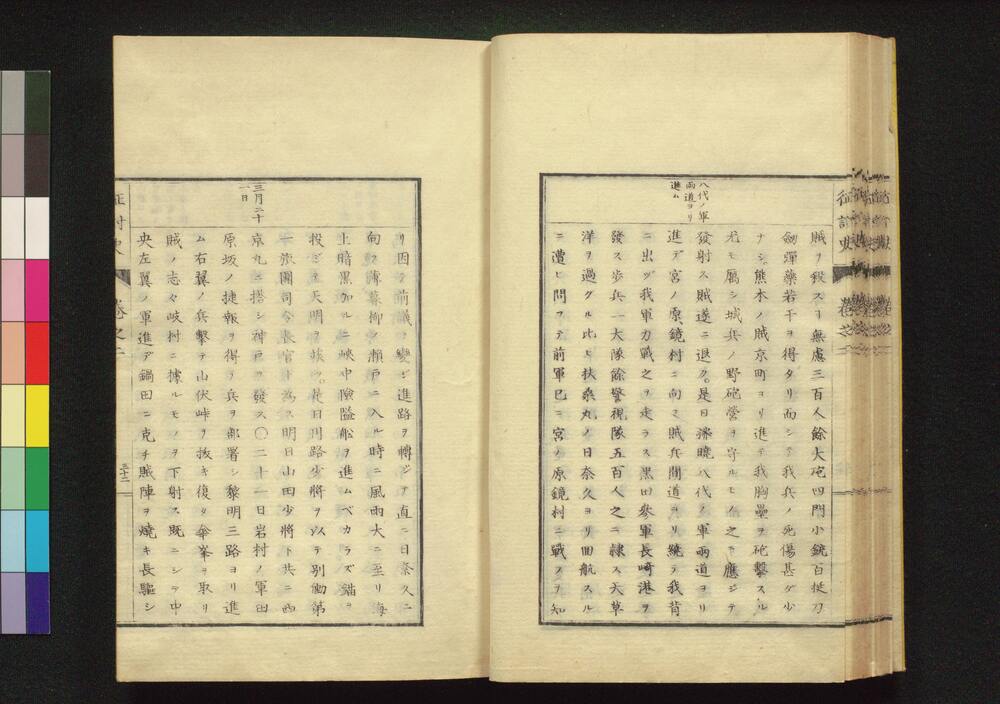 八代ノ軍
兩道ヨリ
進ム
賊ヲ殺スヿ無慮三百人餘大砲四門小銃百挺刀
劒彈藥若干ヲ得タリ而シテ我兵ノ死傷甚ダ少
ナシ。熊本ノ賊京町ヨリ進テ我胸壘ヲ砲擊スル
尤モ厲シ城兵ノ野砲營ヲ守ルモノ之ニ應ジテ
發射ス賊遂ニ退ク。是日深曉八代ノ軍兩道ヨリ
進デ宮ノ原鏡村ニ向フ賊兵間道ヨリ繞テ我背
ニ出ヅ我軍力戰之ヲ走ラス黑田參軍長崎港ヲ
發ス步兵一大隊餘警視隊五百人之ニ隷ス天草
洋ヲ過グル比ヒ扶桑丸ノ日奈久ヨリ回航スル
ニ遭ヒ問フテ前軍已ニ宮ノ原鏡村ニ戰フヲ知
三月二十
一日
リ因テ前議ヲ變ジ進路ヲ轉ジテ直ニ日奈久ニ
向フ薄暮柳ノ瀨戸ニ入ル時ニ風雨大ニ至リ海
上暗黑加ルニ峽中險隘船ヲ進ムベカラズ錨ヲ
投ジテ天明ヲ竢ツ。是日川路少將ヲ以テ別働第
三旅團司令長官ト爲ス明日山田少將ト共ニ西
京丸ニ搭シ神戸ヲ發ス〇二十一日岩村ノ軍田
原坂ノ捷報ヲ得テ兵ヲ部署シ黎明三路ヨリ進
ム右翼ノ兵擊テ山伏峠ヲ拔キ復タ傘峯ヲ取リ
賊ノ志々岐村ニ據ルモノヲ下射ス既ニシテ中
央左翼ノ軍進デ鍋田ニ克チ賊陣ヲ燒キ長驅シ
征討史
卷之二